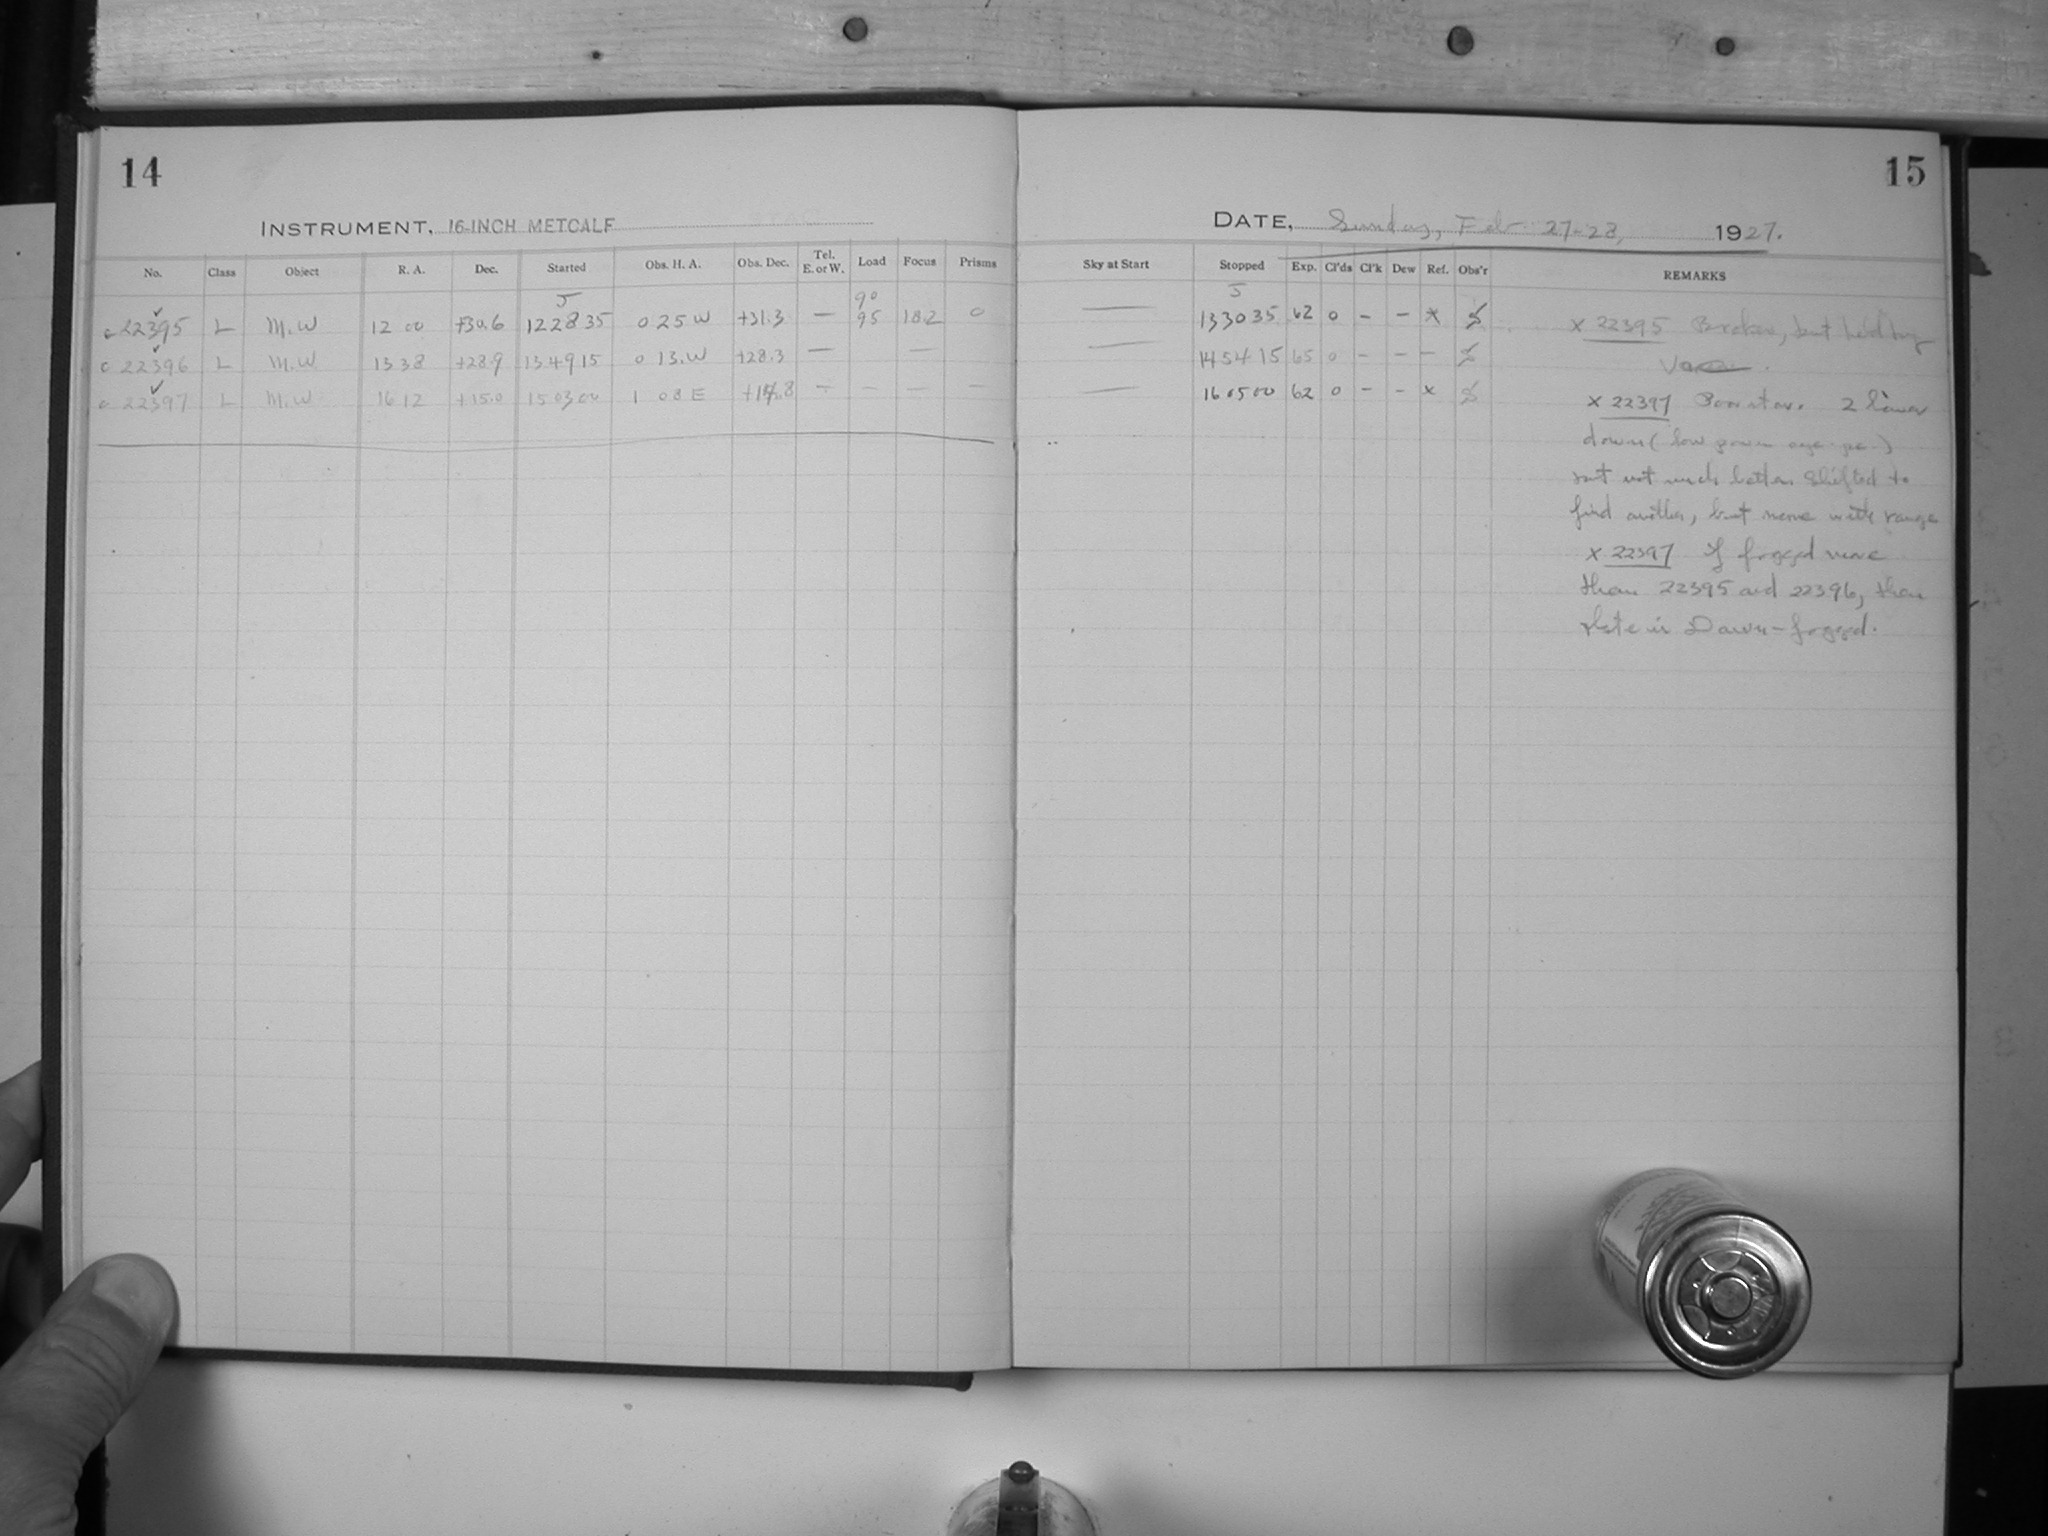 14
INSTRUMENT, 16-INCH METCALF
No. Class Object R. A. Dec. Started Obs. H. A. Obs. Dec. Tel. E. or W. Load Focus Prisms
J 90
c 22395 L M.W 12 00 +30.6 12 28 35 0 25 W +31.3 — 95 18.2 0
c 22396 L M.W 13 38 +28.9 13 49 15 0 13.W +28.3 — —
c 22397 L M.W 16 12 +15.0 15 03 00 1 08 E — — — —
15
DATE, Sunday, Feb. 27-28, 1927.
Sky at Start Stopped Exp. Cl'ds Cl'k Dew Ref. Obs'r REMARKS
J
— 13 30 35 62 0 – – x
— 14 54 15 65 0 – – –
— 16 05 00 62 0 – – x
x 22395 Broken, but held by
x 22397 Poor star. 2 lower
down (low power eye-pe.)
but not much better. Shifted to
find another, but none with range
x 22397 If fogged more
than 22395 and 22396, then
plate is Dawn-fogged.